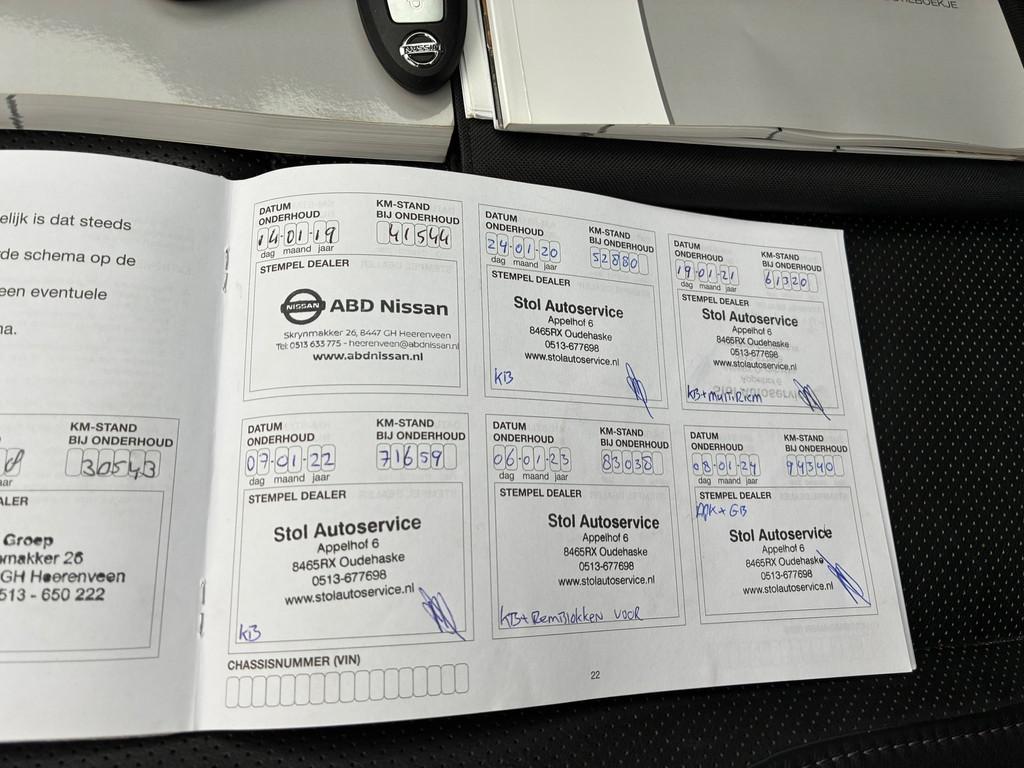 NISSAN
elijk is dat steeds
rde schema op de
een eventuele
ma.
KM-STAND
BIJ ONDERHOUD
30543
aar
ALER
Groep
makker 26
GH Heerenveen
513 - 650 222
DATUM
ONDERHOUD
14-01-19
dag maand jaar
KM-STAND
BIJ ONDERHOUD
41544
STEMPEL DEALER
NISSAN ABD Nissan
Skrynmakker 26, 8447 GH Heerenveen
Tel: 0513 633 775 - heerenveen@abdnissan.nl
www.abdnissan.nl
DATUM
ONDERHOUD
24-01-20
dag maand jaar
KM-STAND
BIJ ONDERHOUD
52880
STEMPEL DEALER
Stol Autoservice
Appelhof 6
8465RX Oudehaske
0513-677698
www.stolautoservice.nl
KB
DATUM
ONDERHOUD
19-01-21
dag maand jaar
KM-STAND
BIJ ONDERHOUD
61320
STEMPEL DEALER
Stol Autoservice
Appelhof 6
8465RX Oudehaske
0513-677698
www.stolautoservice.nl
KB+multiRiem
DATUM
ONDERHOUD
07-01-22
dag maand jaar
KM-STAND
BIJ ONDERHOUD
71659
STEMPEL DEALER
Stol Autoservice
Appelhof 6
8465RX Oudehaske
0513-677698
www.stolautoservice.nl
KB
DATUM
ONDERHOUD
06-01-23
dag maand jaar
KM-STAND
BIJ ONDERHOUD
83038
STEMPEL DEALER
Stol Autoservice
Appelhof 6
8465RX Oudehaske
0513-677698
www.stolautoservice.nl
KB+RemBlokken VOOR
DATUM
ONDERHOUD
08-01-24
dag maand jaar
KM-STAND
BIJ ONDERHOUD
94340
STEMPEL DEALER
APK+GB
Stol Autoservice
Appelhof 6
8465RX Oudehaske
0513-677698
www.stolautoservice.nl
CHASSISNUMMER (VIN)
22